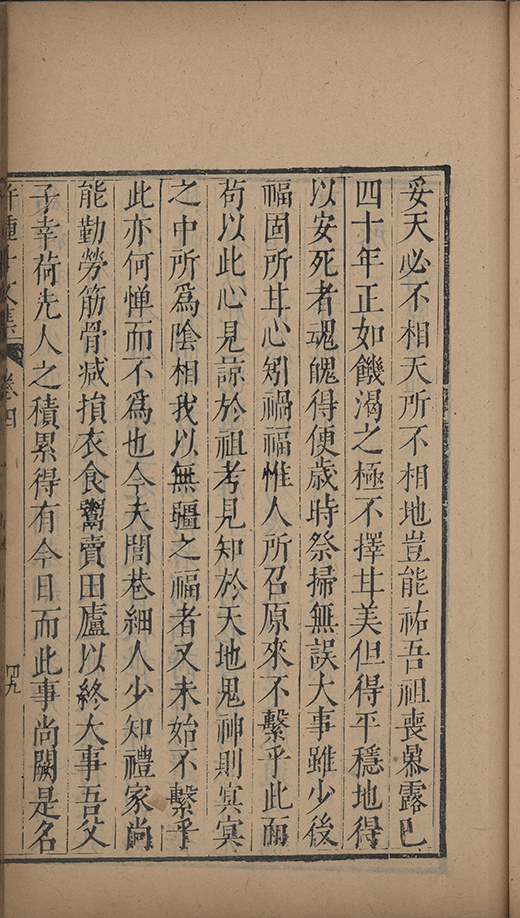 妥天必不相天所不相地豈能祐吾祖喪暴露已
四十年正如饑渴之極不擇甘美但得平穩地得
以安死者魂魄得便歲時祭掃無誤大事雖少後
福固所甘心矧禍福惟人所召原來不繫乎此而
苟以此心見諒於祖考見知於天地鬼神則冥冥
之中所為陰相我以無疆之福者又未始不繫乎
此亦何憚而不為也今夫閭巷細人少知禮家尚
能勤勞筋骨减損衣食鬻賣田廬以終大事吾父
子幸荷先人之積累得有今日而此事尚闕是名
卷四
四九